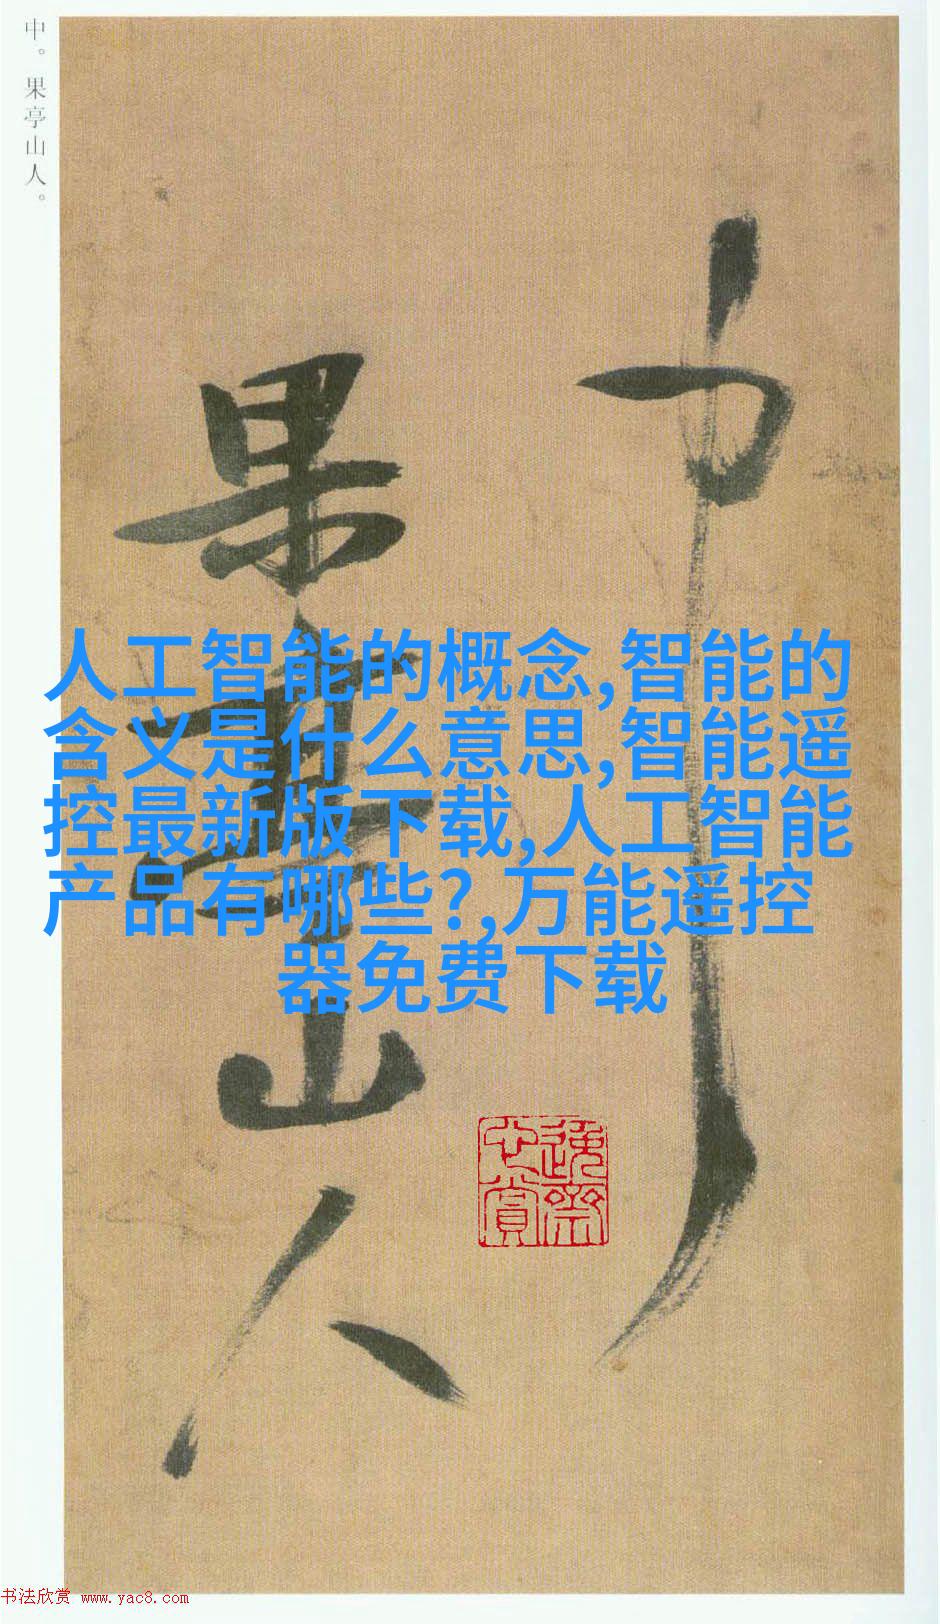 中。果亭山人。
中
果亭
山人
人工智能的概念,智能的
含义是什么意思,智能遥
控最新版下载,人工智能
产品有哪些?,万能遥控
器免费下载
逸斋
心赏
书法欣赏 www.yac8.com